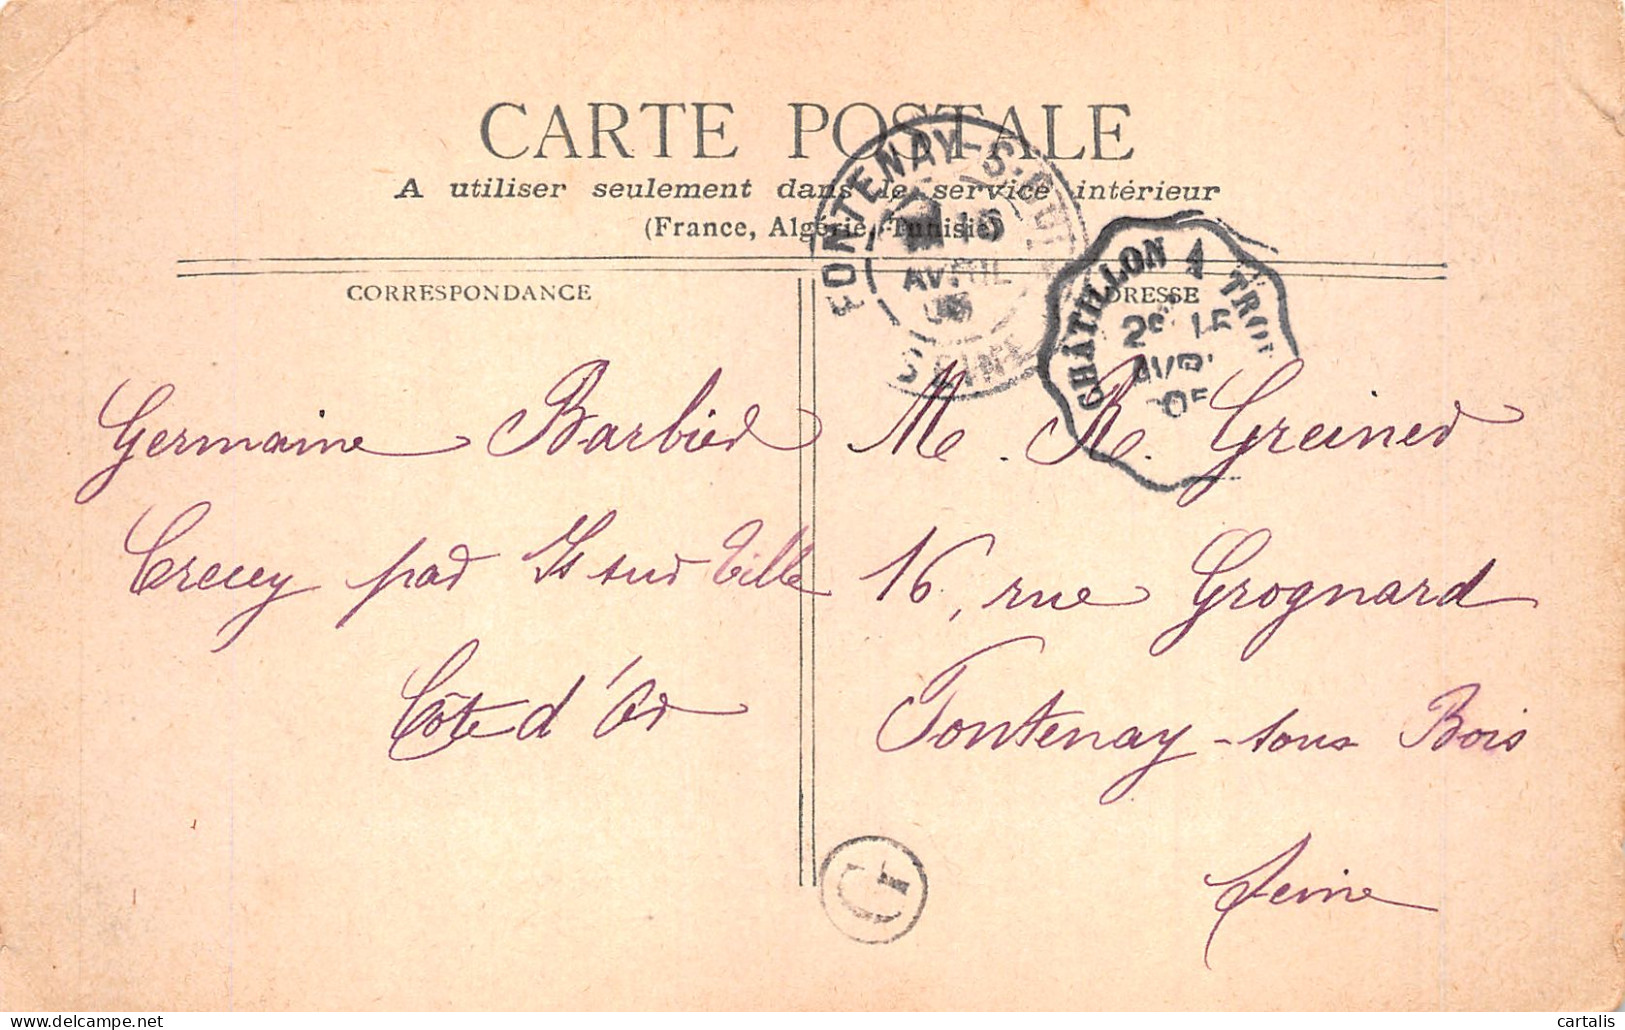 CARTE POSTALE
A utiliser seulement dans le service intérieur
(France, Algérie, Tunisie)
FONTENAY-S-
16
AVRIL
SEINE
CHÂTILLON A TRO
15
AVR
05
CORRESPONDANCE
ADRESSE
Germaine Barbier
Crecey par Is sur Tille
Côte d'Or
M. R. Greiner
16, rue Grognard
Fontenay-sous Bois
Seine
G
cartalis